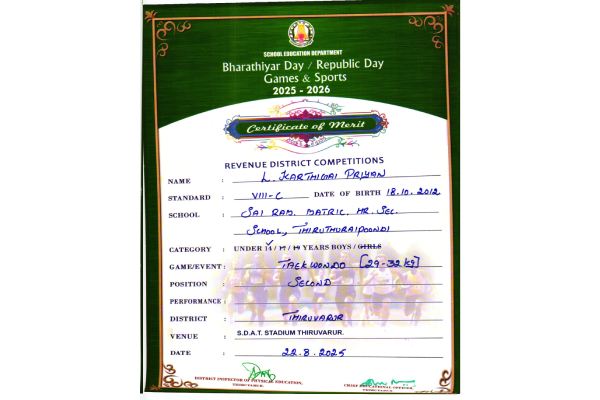 SCHOOL EDUCATION DEPARTMENT
Bharathiyar Day / Republic Day
Games & Sports
2025 - 2026
Certificate of Merit
REVENUE DISTRICT COMPETITIONS
NAME : L. KARTHIGAI PRIYAN
STANDARD : VIII-C DATE OF BIRTH 18.10.2012
SCHOOL : SAI RAM. MATRIC. HR. SEC.
SCHOOL, THIRUTHURAIPOONDI
CATEGORY : UNDER 14 / 17 / 19 YEARS BOYS / GIRLS
GAME/EVENT : TAEKWONDO [29-32 kg]
POSITION : SECOND
PERFORMANCE :
DISTRICT : THIRUVARUR
VENUE : S.D.A.T. STADIUM THIRUVARUR.
DATE : 22.8.2025
DISTRICT INSPECTOR OF PHYSICAL EDUCATION, CHIEF EDUCATIONAL OFFICER,
THIRUVARUR. THIRUVARUR.